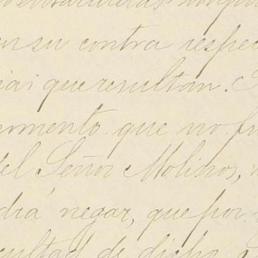 en su contra respec
cia; que resultan.
rmento que no fu
del Señor Molinos,
drá negar, que por
cultad de dicho